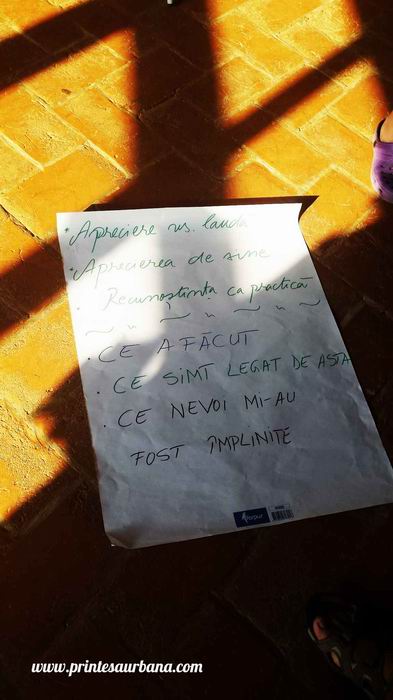 • Apreciere vs. laudă
• Aprecierea de sine
• Recunoștința ca practică
~ " ~ " ~ " ~
• CE A FĂCUT
• CE SIMT LEGAT DE ASTA
• CE NEVOI MI-AU
FOST ÎMPLINITE
www.printesaurbana.com